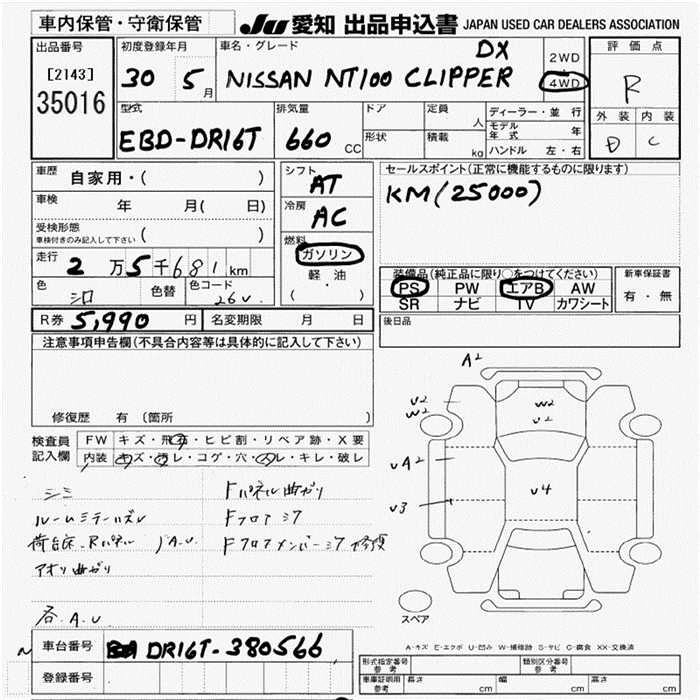 車内保管・守衛保管
JU 愛知 出品申込書 JAPAN USED CAR DEALERS ASSOCIATION
出品番号
[2143]
35016
初度登録年月
30 5月
車名・グレード
DX
NISSAN NT100 CLIPPER
2WD
4WD
評価点
R
外装 内装
D C
型式
EBD-DR16T
排気量
660 CC
ドア
形状
定員
人
積載
kg
ディーラー・並行
モデル年式 年
ハンドル 左・右
車歴
自家用・( )
車検
年 月( 日)
受検形態
車検付きのみ記入して下さい ( )
走行
2万5千681km
色
シロ
色替
色コード
26U
シフト
AT
冷房
AC
燃料
ガソリン
軽油
( ・ )
セールスポイント(正常に機能するものに限ります)
KM(25000)
装備品(純正品に限り○をつけてください)
PS PW エアB AW
SR ナビ TV カワシート
新車保証書
有・無
R券 5,990 円
名変期限 月 日
後日品
注意事項申告欄(不具合内容等は具体的に記入して下さい)
修復歴 有 〔箇所
検査員記入欄
FW キズ・飛石・ヒビ割・リペア跡・X要
内装 キズ・汚レ・コゲ・穴・スレ・キレ・破レ
シミ
ルームミラーハズレ
荷台床、Rパネル )A.U.
アオリ曲ガリ
各A.U
Fパネル曲ガリ
Fフロアシア
Fフロアメンバーシア修復
A2
U2
W2
W2
U2
UA2
U3
U4
スペア
A-キズ E-エクボ U-凹み W-補修跡 S-サビ C-腐食 XX-交換済
車台番号
DR16T-380566
登録番号
形式指定番号
参考
類別区分番号
参考
車庫証明用
参考
長さ cm 幅 cm 高さ cm